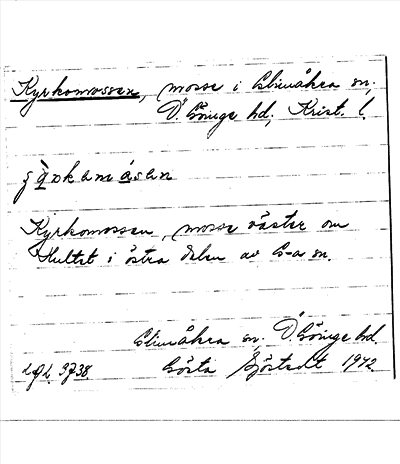 Kyrkomossen, mosse i Glimåkra sn,
Ö. Göinge hd, Krist. l.
Kyrkomossen, mosse väster om
Hultet i östra delen av G-a sn.
Glimåkra sn. Ö. Göinge hd.
Gösta Sjöstedt 1942